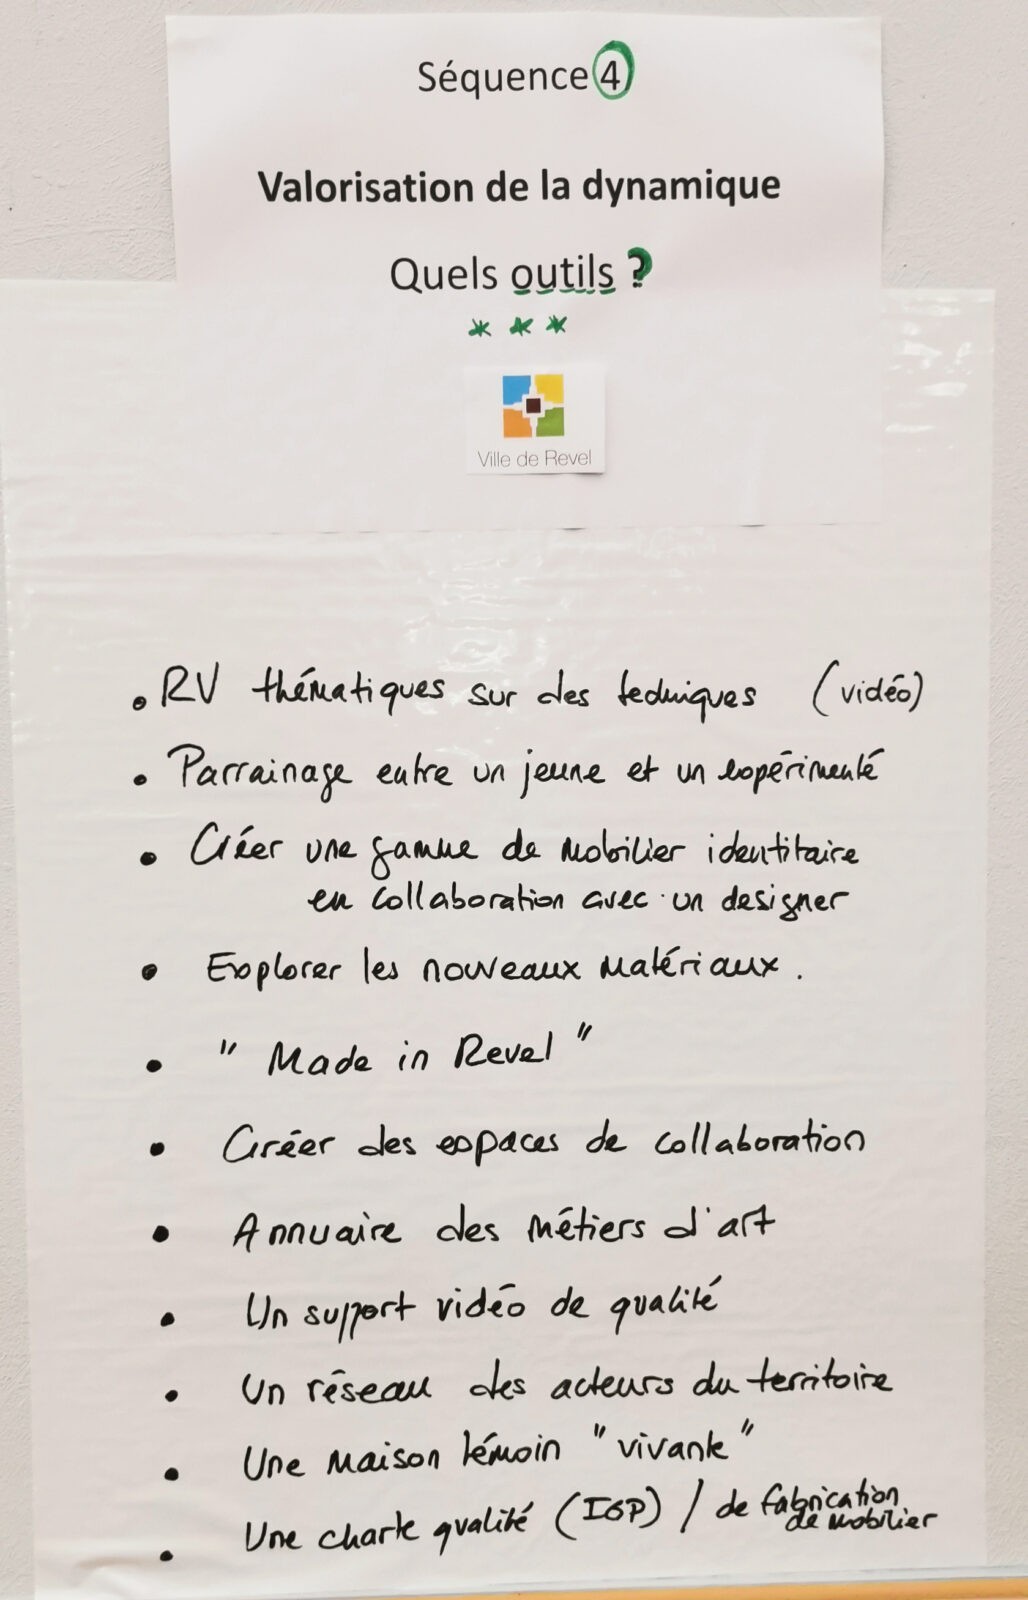 Séquence 4
Valorisation de la dynamique
Quels outils ?
* * *
Ville de Revel
• RV thématiques sur des techniques (vidéo)
• Parrainage entre un jeune et un expérimenté
• Créer une gamme de mobilier identitaire
en collaboration avec un designer
• Explorer les nouveaux matériaux.
• "Made in Revel"
• Créer des espaces de collaboration
• Annuaire des métiers d'art
• Un support vidéo de qualité
• Un réseau des acteurs du territoire
• Une maison témoin "vivante"
• Une charte qualité (IGP) / de fabrication
de mobilier